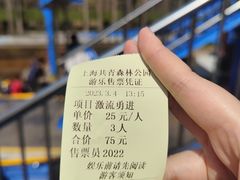 上海共青森林公园
游乐售票凭证
2023.3.4 13:15
项目 激流勇进
单价 25 元/人
数量 3 人
合价 75 元
售票员2022
娱乐前请先阅读
游客须知